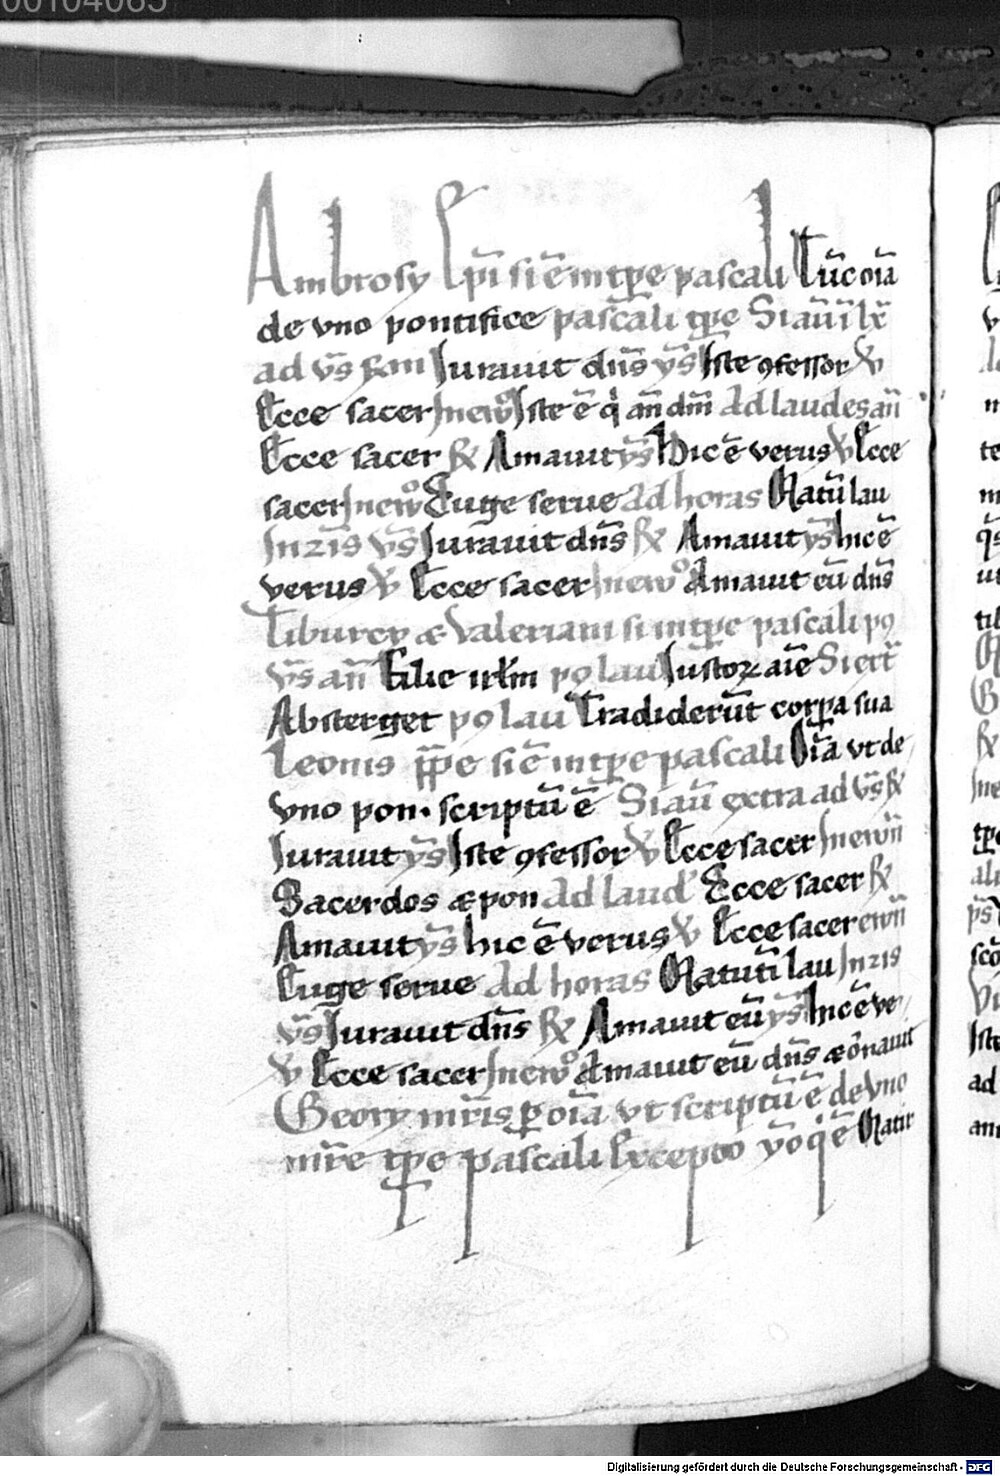 00104065
Ambrosy Epi si ē in tp̄e pascali Tūc oīa
de vno pontifice pascali tp̄e Si aūū lx
ad v̄s Jurauit dn̄s ys̄ Iste ꝯfessor ꝟ
Ecce sacer In ewº Iste ē q̄ an̄ dm̄ Ad laudes an̄
Ecce sacer ℟ Amauit ys̄ Hic ē verus ꝟ Ecce
sacer In ewº Euge serue ad horas Matū lau
In 2is v̄s Jurauit dn̄s ℟ Amauit ys̄ hic ē
verus ꝟ Ecce sacer In ewº Amauit eū dn̄s
Tiburcy æ Valeriani si in tp̄e pascali po
v̄s an̄ Filie irl̄m po lau Iustoꝝ aīe Si ert̄
Absterget po lau Tradiderūt corpa sua
Leonis pp̄e si ē in tp̄e pascali Oīa vt de
vno pon. scriptū ē Si aū extra ad v̄s ℟
Jurauit ys̄ Iste ꝯfessor ꝟ Ecce sacer In ewn̄
Sacerdos æ pon Ad laud' Ecce sacer ℟
Amauit ys̄ hic ē verus ꝟ Ecce sacer ewn̄
Euge serue Ad horas Matuti lau In 2is
v̄s Jurauit dn̄s ℟ Amauit eū ys̄ Hic ē ve
ꝟ Ecce sacer In ewº Amauit eū dn̄s æ ōnauit
Georȳ mr̄is ꝑ oīa vt scriptū ē de vno
mr̄e tp̄e pascali Excepto yōq̄ ē Matir
Digitalisierung gefördert durch die Deutsche Forschungsgemeinschaft - DFG